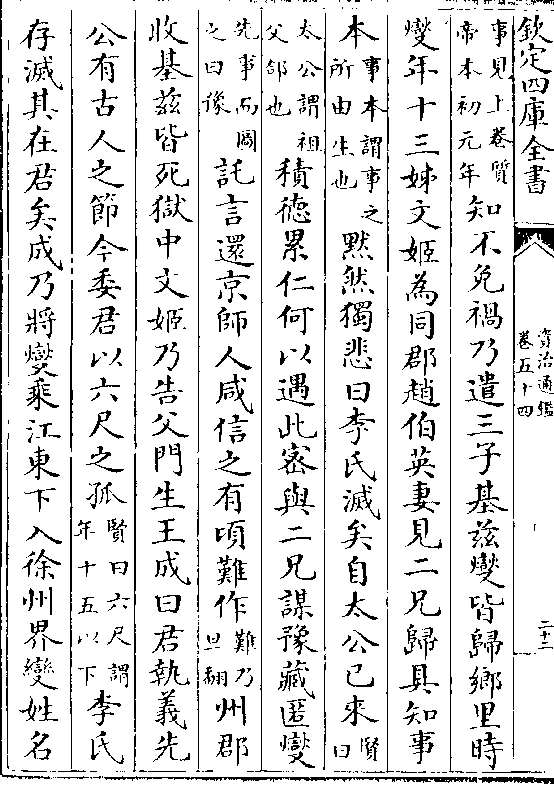 欽定四庫全書
資治通鑑
卷五十四
二十二
事見上卷質
帝本初元年
知不免禍乃遣三子基兹燮皆歸鄉里時
燮年十三姊文姬為同郡趙伯英妻見二兄歸具知事
本
事本謂事之
所由生也
黙然獨悲曰李氏滅矣自太公已來
賢曰
太公謂祖
父郃也
積徳累仁何以遇此宻與二兄謀豫藏匿燮
先事而圖
之曰豫
託言還京師人咸信之有頃難作
難乃
旦翻
州郡
收基兹皆死獄中文姬乃告父門生王成曰君執義先
公有古人之節今委君以六尺之孤
賢曰六尺謂
年十五以下
李氏
存滅其在君矣成乃將燮乘江東下入徐州界變姓名